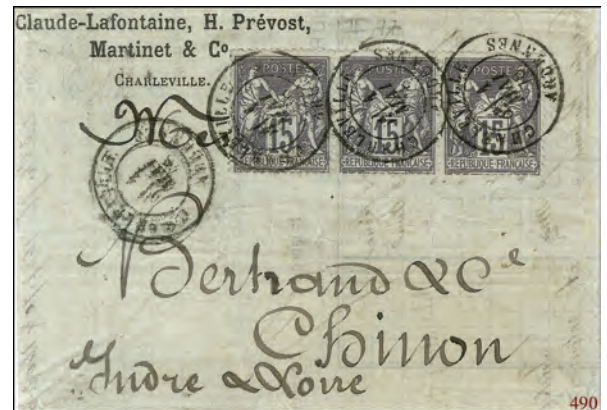 Claude-Lafontaine, H. Prévost,
Martinet & Co
CHARLEVILLE.
POSTE
15
REPUBLIQUE FRANCAISE
POSTE
15
REPUBLIQUE FRANCAISE
POSTE
15
REPUBLIQUE FRANCAISE
CHARLEVILLE
ARDENNES
Bertrand & Cie
Chinon
Indre & Loire
490